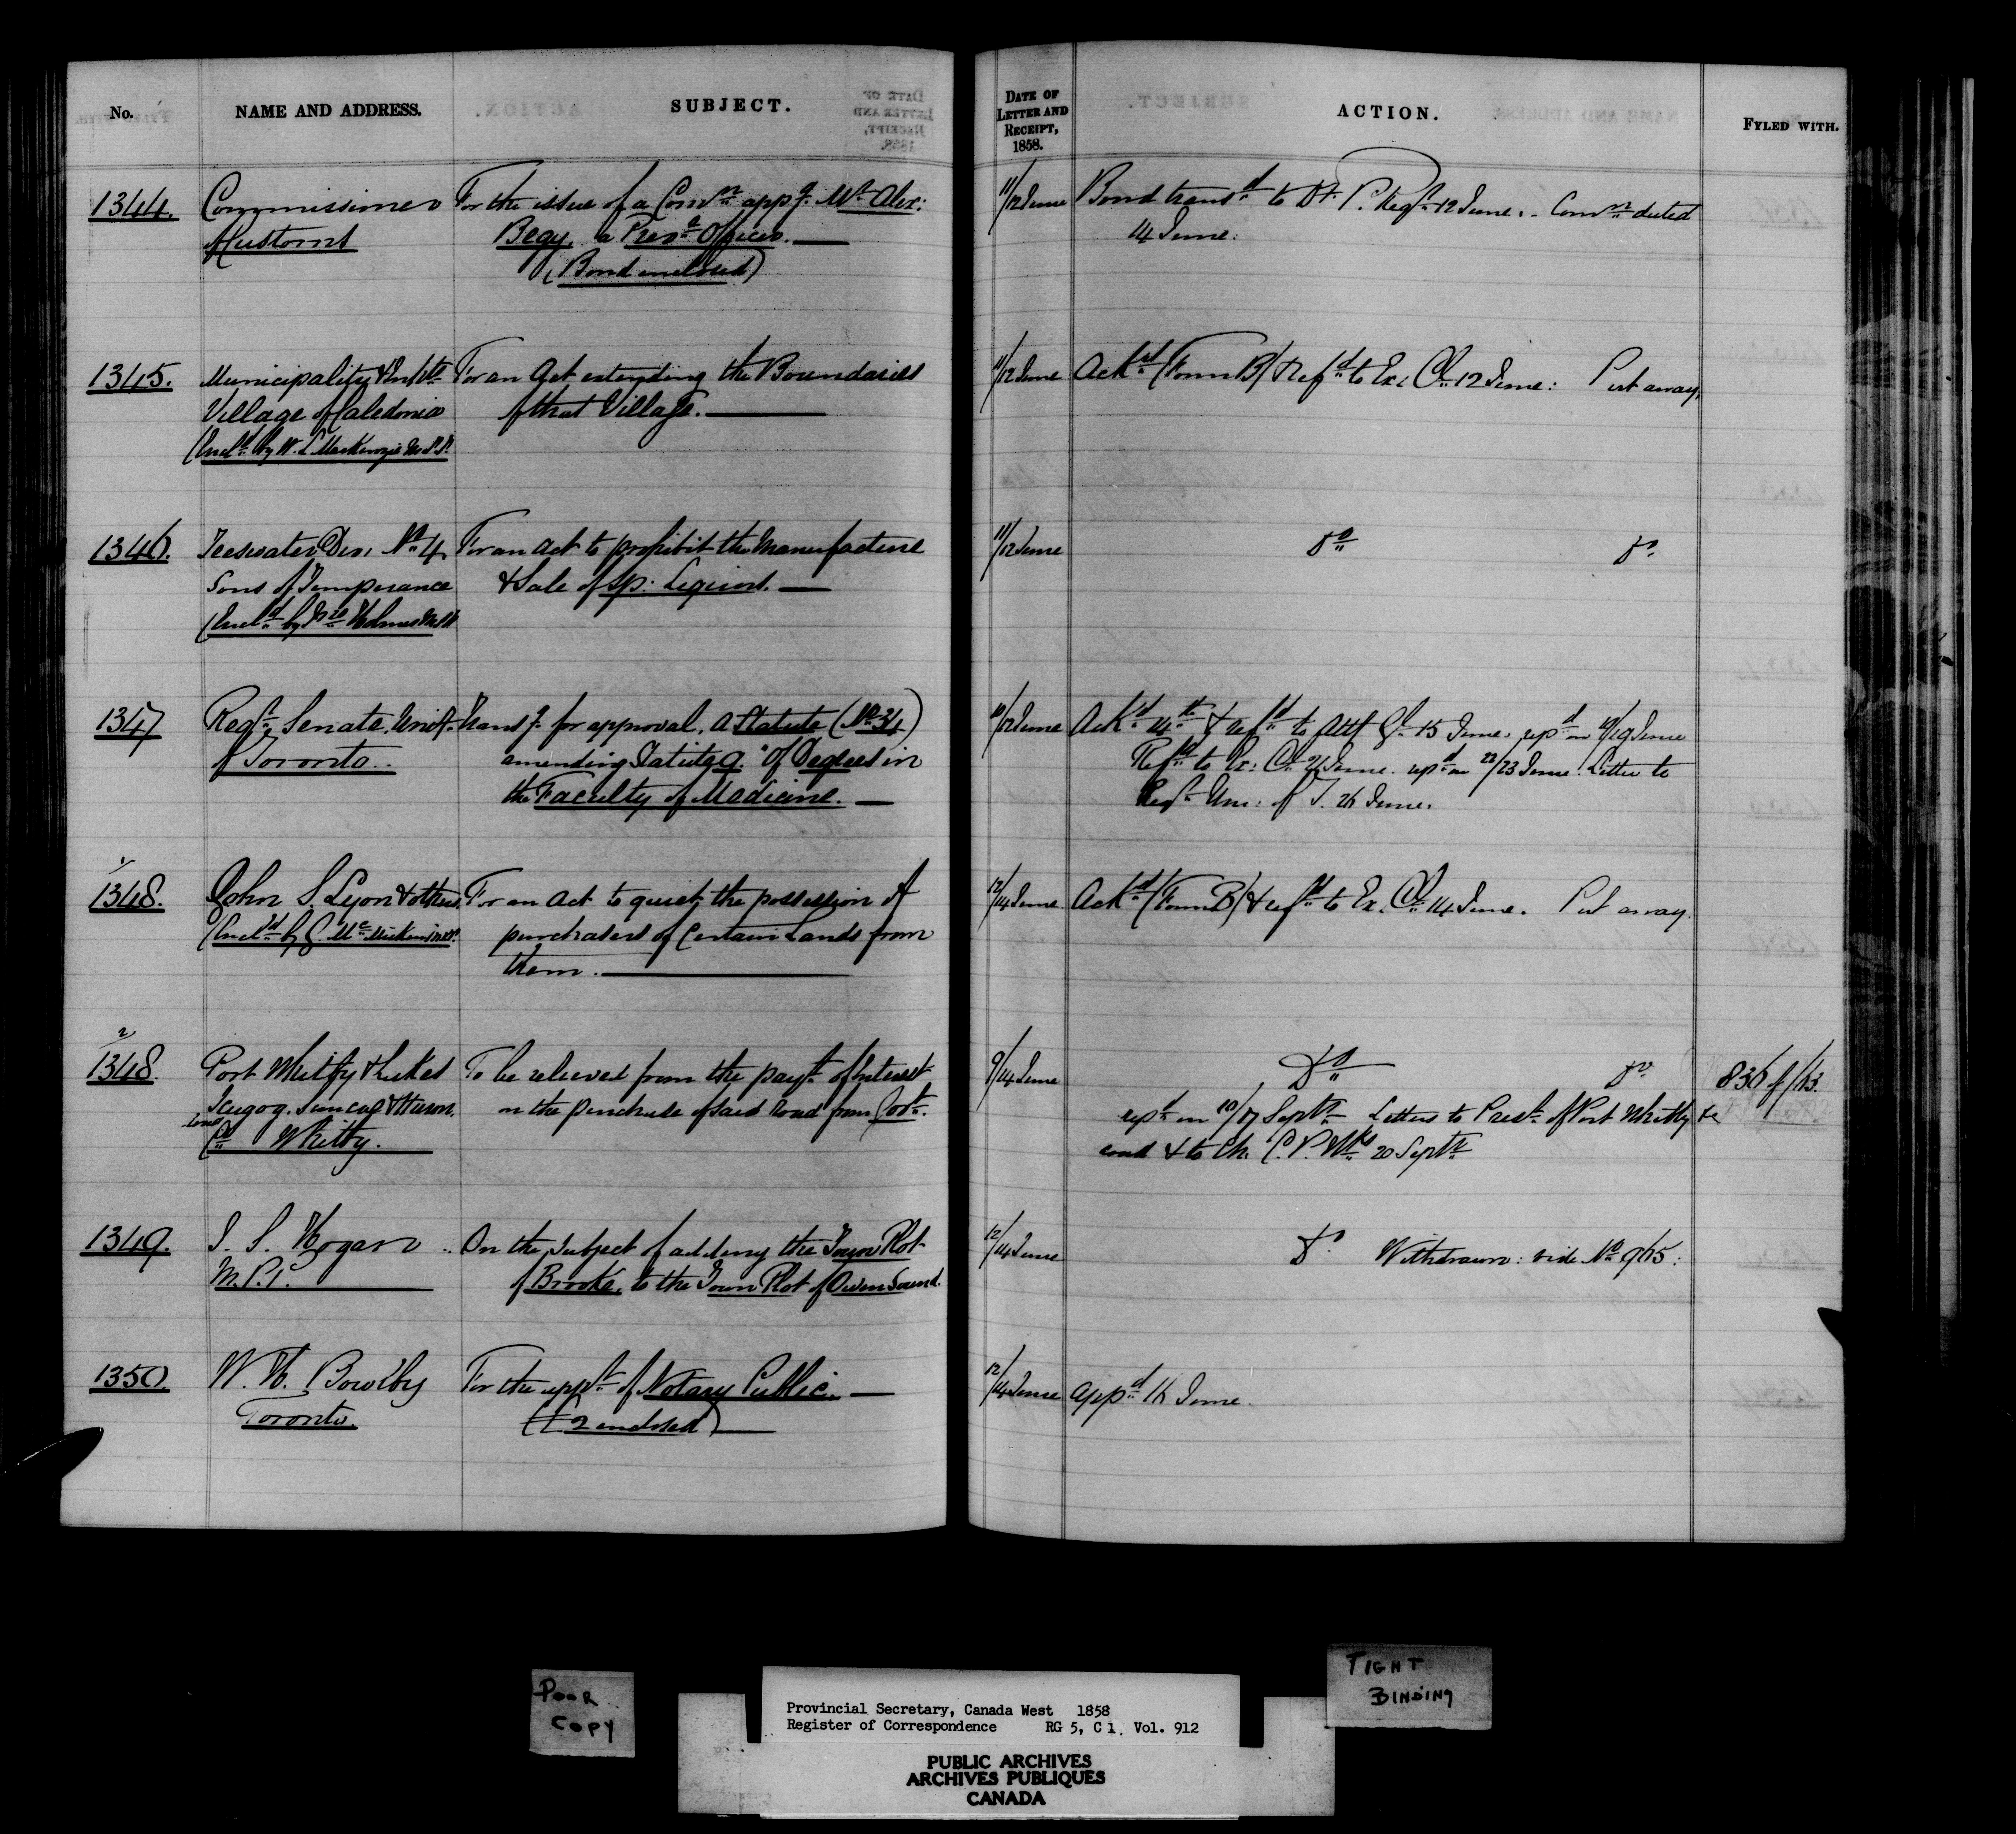 No.
NAME AND ADDRESS.
SUBJECT.
DATE OF LETTER AND RECEIPT, 1858.
ACTION.
FYLED WITH.
1344. Commissioner For the issue of a Comn appg Mr Alex: 11/12 June Bond transd to Dy. P. Regr 12 June. - Comn dated
of Customs Begy, a Prevve Officer. 14 June.
(Bond enclosed)
1345. Municipality & Inhbts For an Act extending the Boundaries 11/12 June Ackd (Form B) & Refd to Ex: Cl 12 June: Put away.
Village of Caledonia of that Village.
(Encld by W. L. MacKenzie M.P.P.
1346. Teeswater Div: No 4, For an Act to prohibit the Manufacture 11/12 June Do Do
Sons of Temperance & Sale of Sp: Liquors.
(Encld by Jno Holmes M.P.P.
1347 Regr Senate, Univy Transg for approval, a Statute (No 34) 10/12 June Ackd 14th & refd to Atty Gl 15 June. repd on 19 June
of Toronto. amending Statute 9. "Of Degrees in Refd to Ex: Cl 21 June. repd on 22/23 June. Letter to
the Faculty of Medicine. Regr Uni: of T. 26 June.
1
1348. John S. Lyon & others. For an Act to quiet the possession of 12/14 June Ackd (Form B) & refd to Ex. Cl 14 June. Put away.
(Encld by G. McMicken M.P.P. purchasers of Certain Lands from
them.
2
1348. Port Whitby & Lakes To be relieved from the payt of Interest 9/14 June Do Do 836 of /63.
Scugog, Simcoe & Huron, on the purchase of said Road from Govt. repd on 10/17 Septr Letters to Prest of Port Whitby &c
Co Whitby. road & to Ch. C. P. Wks 20 Septr
1349. J. S. Hogan On the subject of adding the Town Plot 12/14 June Do Withdrawn: vide No 965:
M.P.P. of Brooke, to the Town Plot of Owen Sound.
1350. W. H. Bowlby For the appt of Notary Public. 12/14 June Appd 16 June.
Toronto. (£2 enclosed)
POOR
COPY
TIGHT
BINDING
Provincial Secretary, Canada West 1858
Register of Correspondence RG 5, C 1. Vol. 912
PUBLIC ARCHIVES
ARCHIVES PUBLIQUES
CANADA